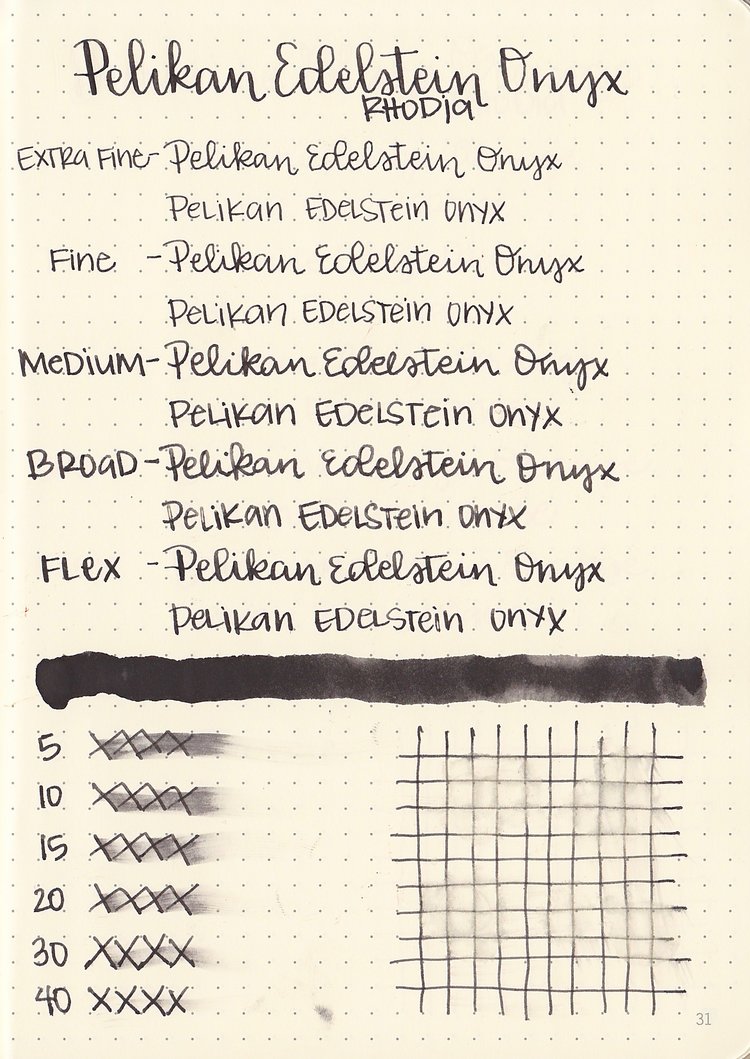 Pelikan Edelstein Onyx
RHODIA
EXTRA FINE - Pelikan Edelstein Onyx
PELIKAN EDELSTEIN ONYX
FINE - Pelikan Edelstein Onyx
PELIKAN EDELSTEIN ONYX
MEDIUM - Pelikan Edelstein Onyx
PELIKAN EDELSTEIN ONYX
BROAD - Pelikan Edelstein Onyx
PELIKAN EDELSTEIN ONYX
FLEX - Pelikan Edelstein Onyx
PELIKAN EDELSTEIN ONYX
5 XXXX
10 XXXX
15 XXXX
20 XXXX
30 XXXX
40 XXXX
31